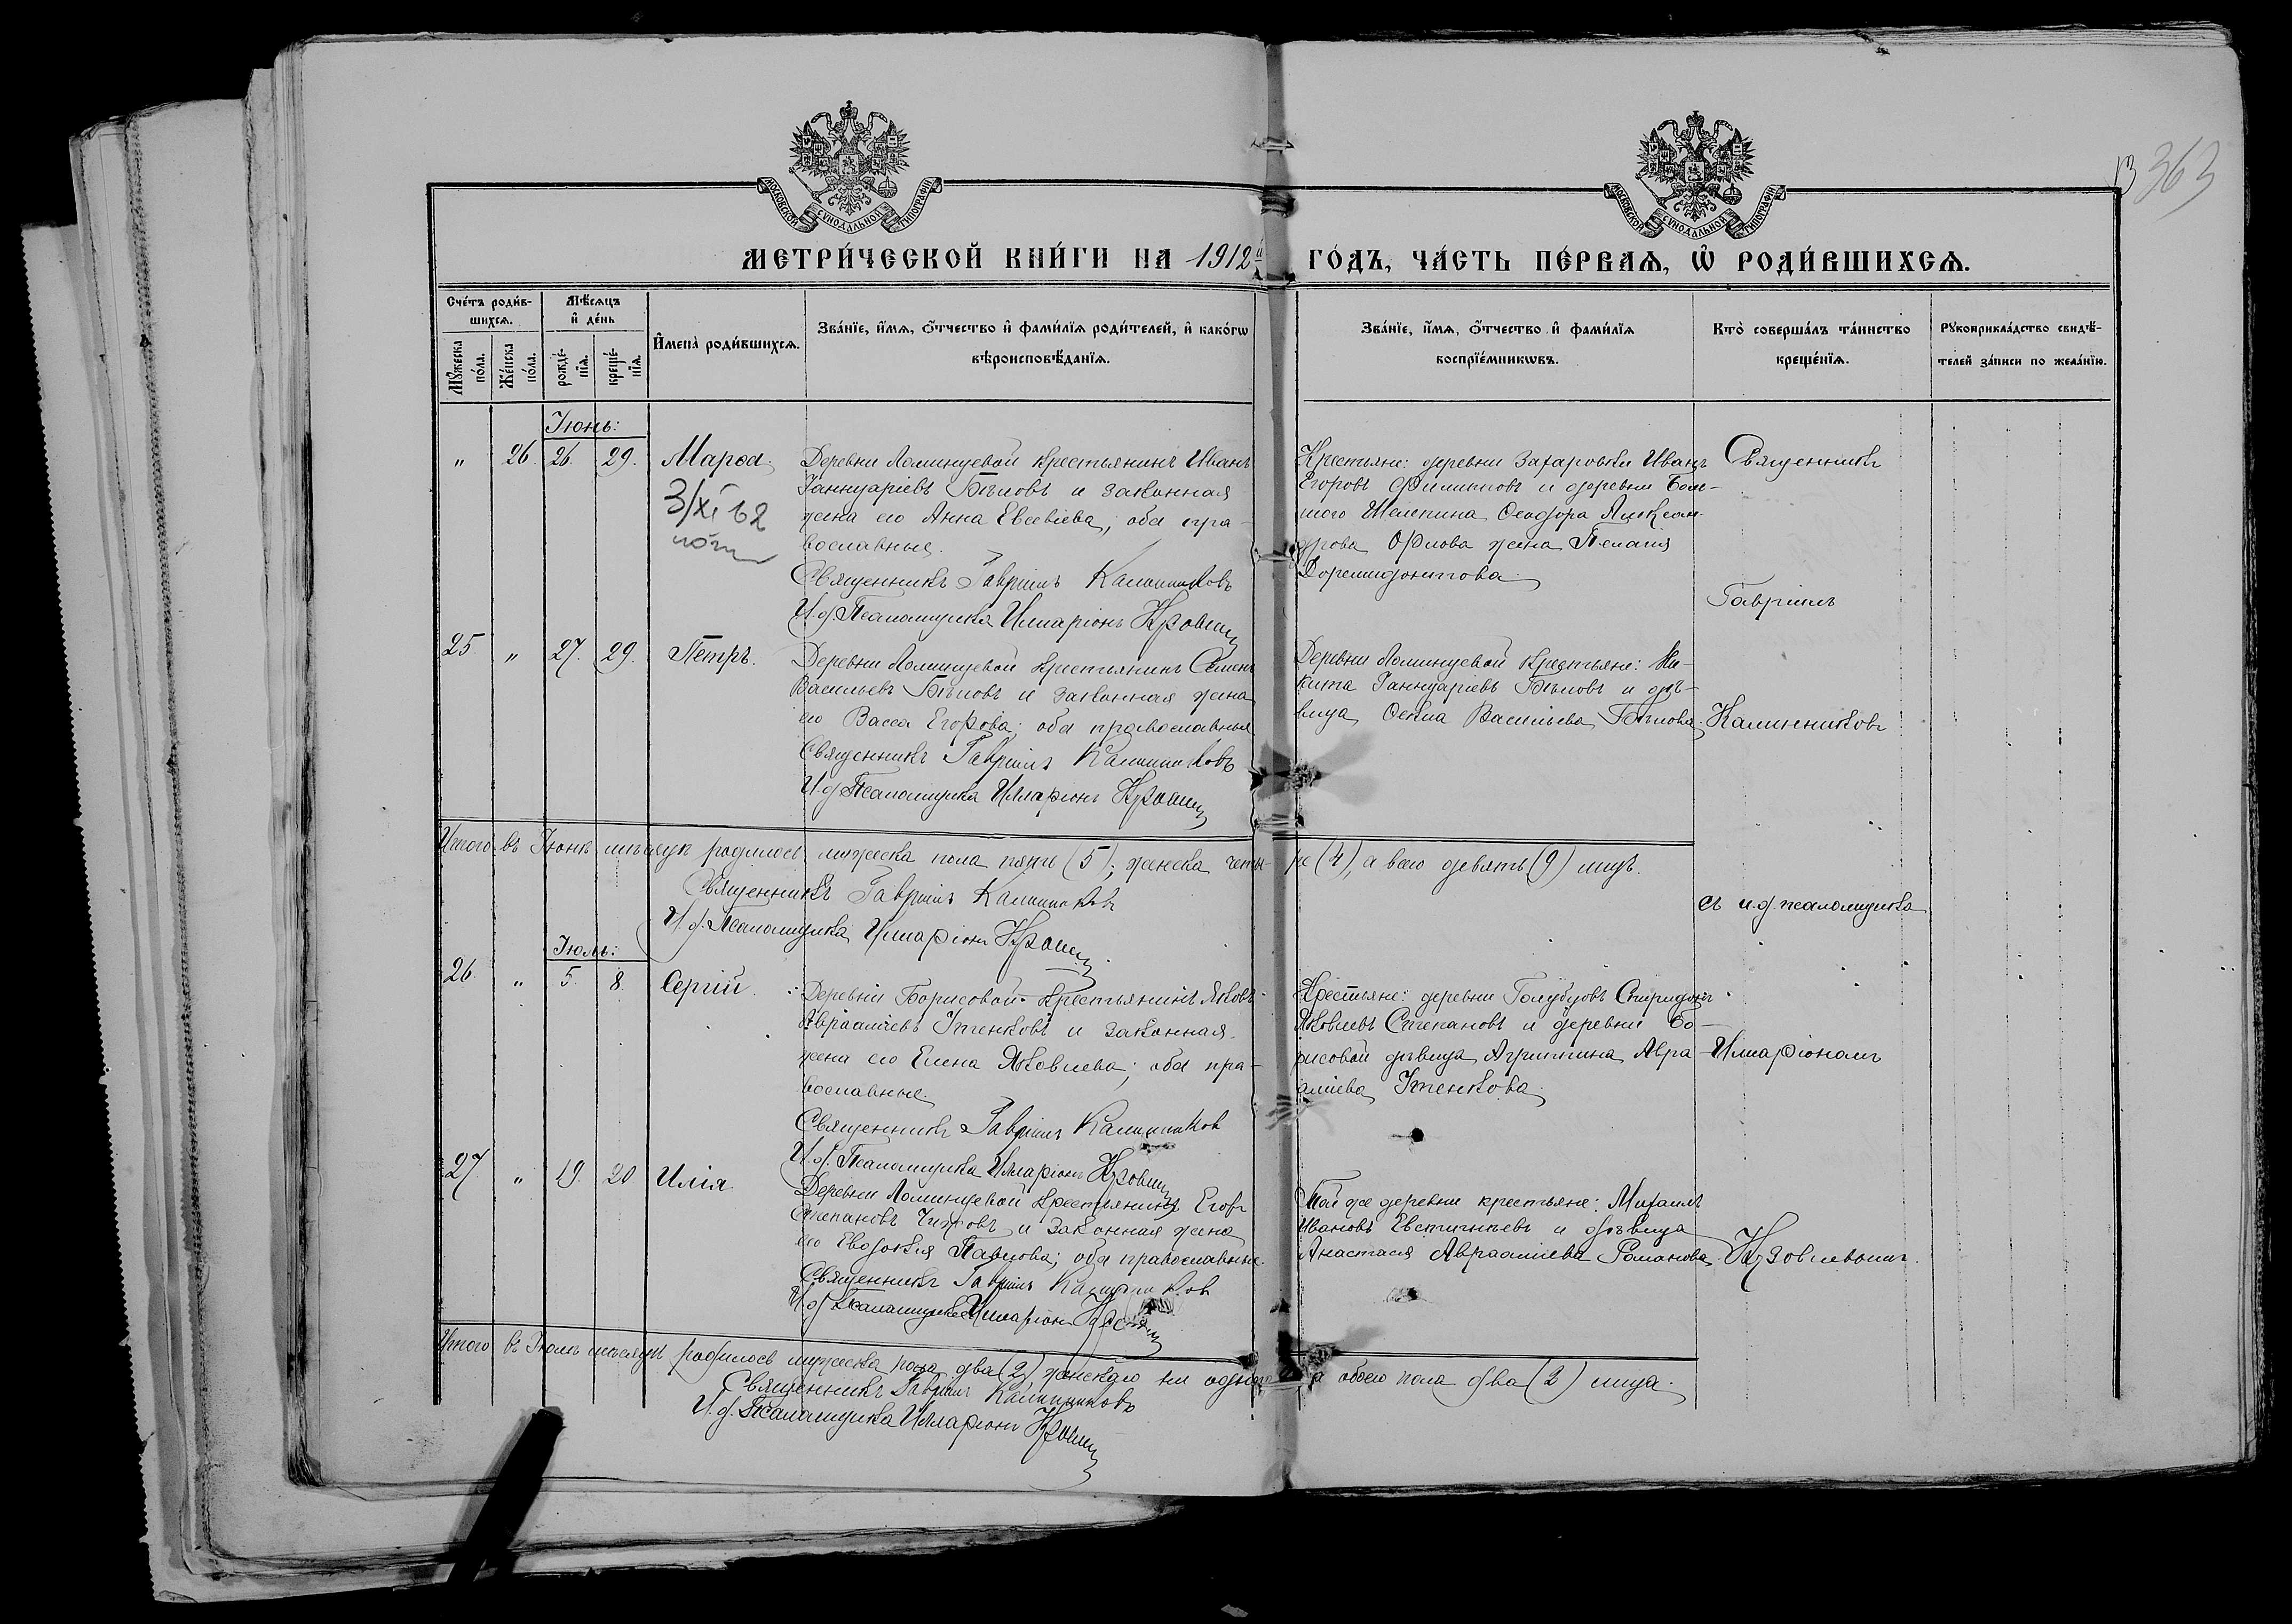 МОСКОВСКОЙ СѴНОДАЛЬНОЙ ТИПОГРАФІИ
МОСКОВСКОЙ СѴНОДАЛЬНОЙ ТИПОГРАФІИ
363
МЕТРИ́ЧЕСКОЙ КНИ́ГИ НА 1912й ГО́ДЪ, ЧА́СТЬ ПЕ́РВАѦ, Ѡ҆ РОДИ́ВШИХСѦ.
Сче́тъ роди́в-
шихсѧ.
Мѣ́сѧцъ
и҆ де́нь
И҆мена̀ роди́вшихсѧ.
Зва́нїе, и҆́мѧ, ѻ҆́тчество и҆ фами́лїѧ роди́телей, и҆ како́гѡ
вѣроисповѣ́данїѧ.
Зва́нїе, и҆́мѧ, ѻ҆́тчество и҆ фами́лїѧ
воспрїе́мникѡвъ.
Кто̀ соверша́лъ та́инство
креще́нїѧ.
Рꙋкоприкла́дство свидѣ́-
телей за́писи по жела́нїю.
Мꙋ́жеска
по́ла.
Же́нска
по́ла.
рожде́-
нїѧ.
креще́-
нїѧ.
Іюнь:
" 26. 26. 29. Марѳа.
3/XI 62
Деревни Ломинцевой крестьянинъ Иванъ
Іаннуаріевъ Бѣловъ и законная
жена его Анна Евсевіева; оба пра-
вославные.
Священникъ Гавріилъ Калинниковъ
И. д. Псаломщика Илларіонъ
Крестьяне: деревни Захаровки Иванъ
Егоровъ Филипповъ и деревни Боль-
шого Шелепина Ѳеодора Алексан-
дрова Орлова жена Пелагія
Доримедонтова.
Священникъ
Гавріилъ
25 " 27. 29. Петръ.
Деревни Ломинцевой крестьянинъ Семенъ
Васильевъ Бѣловъ и законная жена
его Васса Егорова; оба православные
Священникъ Гавріилъ Калинниковъ
И. д. Псаломщика Илларіонъ
Деревни Ломинцевой крестьяне: Ни-
кита Іаннуаріевъ Бѣловъ и дѣ-
вица Ѳекла Васильева Бѣлова.
Калинниковъ
Итого въ Іюнѣ мѣсяцѣ родилось мужеска пола пять (5); женска четы- ре (4), а всего девять (9) лицъ.
Священникъ Гавріилъ Калинниковъ
И. д. Псаломщика Илларіонъ
съ и. д. псаломщика
Іюль:
26. " 5. 8. Сергій.
Деревни Борисовой крестьянинъ Яковъ
Авраамiевъ Утенковъ и законная
жена его Елена Яковлева; оба пра-
вославные.
Священникъ Гавріилъ Калинниковъ
И. д. Псаломщика Илларіонъ
Крестьяне: деревни Голубцовъ Спиридонъ
Яковлевъ Степановъ и деревни Бо-
рисовой дѣвица Агриппина Авра-
аміева Утенкова.
Илларіономъ
27. " 19. 20 Илія.
Деревни Ломинцевой крестьянинъ Егоръ
Степановъ и законная жена
его Евдокія Павлова; оба православные.
Священникъ Гавріилъ Калинниковъ
И. д. Псаломщика Илларіонъ
Той же деревни крестьяне: Михаилъ
Ивановъ Евстигнѣевъ и дѣвица
Анастасія Авраамiева Романова.
Кузовлевымъ.
Итого въ Іюлѣ мѣсяцѣ родилось мужеска пола два (2), женскаго ни одного а обоего пола два (2) лица.
Священникъ Гавріилъ Калинниковъ
И. д. Псаломщика Илларіонъ